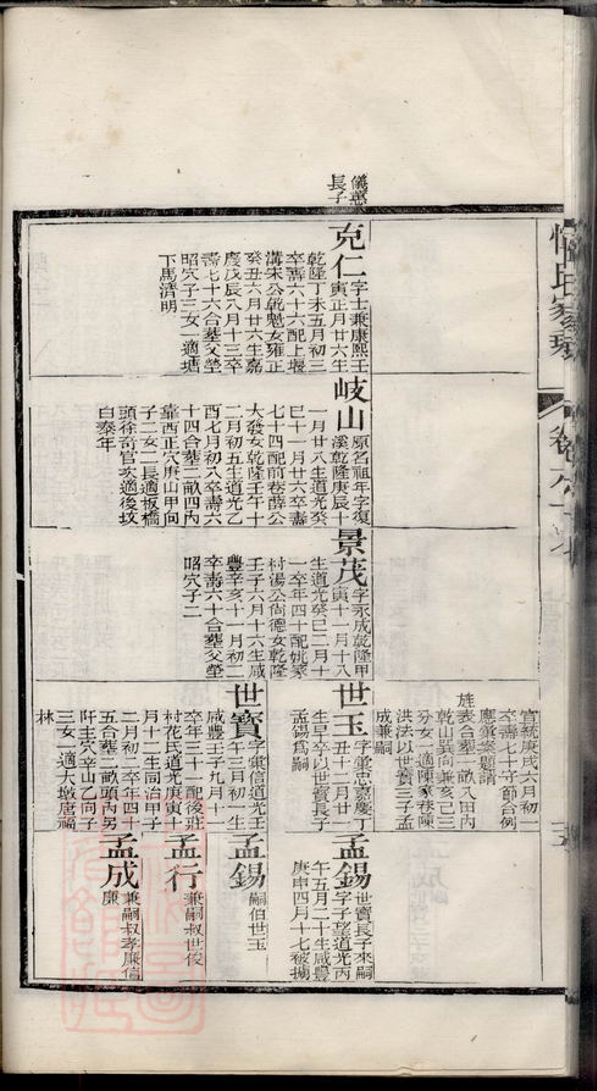 儀鳳
長子
克仁
字士秉康熙壬
寅正月廿六生
乾隆丁未五月初三
卒壽六十六配上堰
溝朱公乾魁女雍正
癸丑六月廿六生嘉
慶戊辰八月十三卒
壽七十六合塟父塋
昭穴子三女一適塘
下馬清明
岐山
原名祖年字復
溪乾隆庚辰十
一月廿八生道光癸
巳十一月廿六卒壽
七十四配前巷薛公
大發女乾隆壬午十
二月初五生道光乙
酉七月初八卒壽六
十四合塟二畝四內
靠西正穴庚山甲向
子二女二長適板橋
頭徐奇官次適後坟
白泰年
景茂
字永成乾隆甲
寅十一月十八
生道光癸巳二月十
一卒年四十配姚家
村湯公尚德女乾隆
壬子六月十六生咸
豐辛亥十一月初二
卒壽六十合塟父塋
昭穴子二
宣統庚戌六月初一
卒壽七十守節合例
應彙案題請
旌表合塟一畝入田內
乾山巽向兼亥己三
分女一適陳家巷陳
洪法以世寶三子孟
成兼嗣
世玉
字彙忠嘉慶丁
丑十二月廿
生早卒以世寶長子
孟錫爲嗣
世寶
字彙信道光壬
午三月初一生
咸豐壬子九月十一
卒年三十一配後莊
村花氏道光庚寅十
月十二生同治甲子
二月初二卒年四十
五合塟二畝頭內另
阡主穴辛山乙向子
三女一適大墩唐福
林
孟錫
世寶長子來嗣
字子望道光丙
午五月二十生咸豐
庚申四月十七被擄
孟錫
嗣伯世玉
孟行
兼嗣叔世俊
孟成
兼嗣叔孝廉信
廉